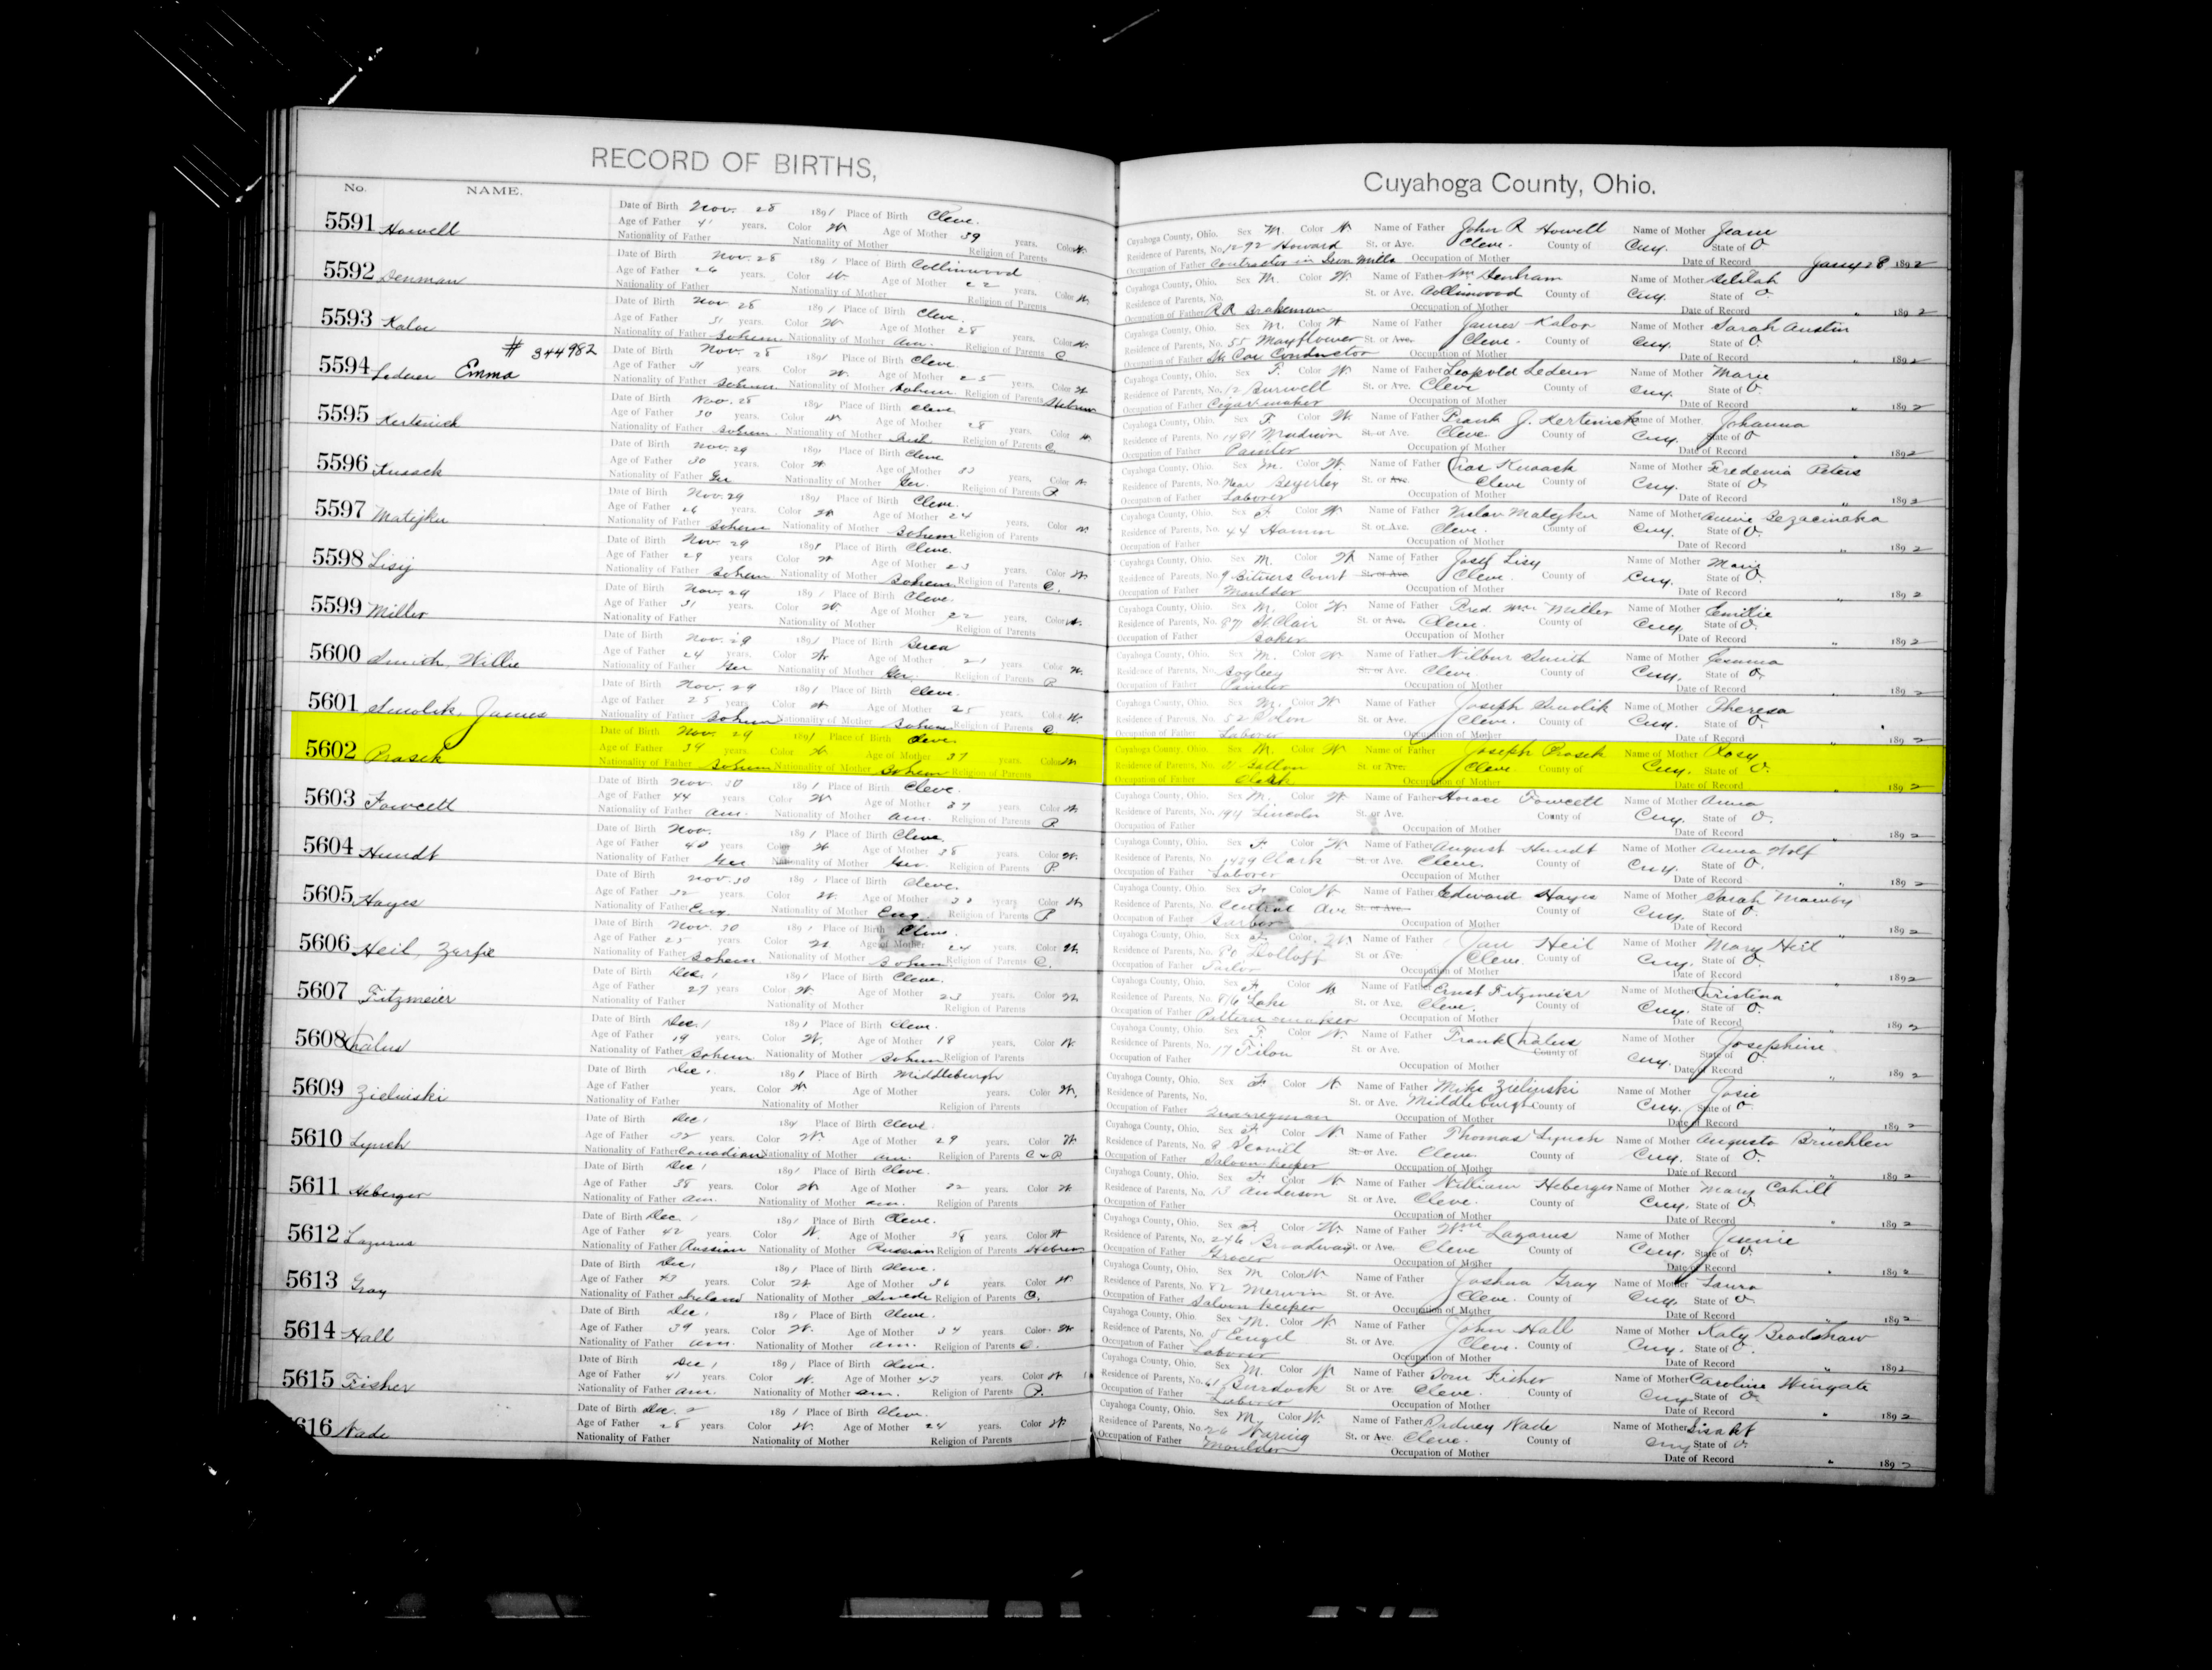 RECORD OF BIRTHS,
No. NAME.
5591 Howell
Date of Birth Nov. 28 1891 Place of Birth Cleve.
Age of Father 41 years. Color W. Age of Mother 39 years. Color W.
Nationality of Father Nationality of Mother Religion of Parents
5592 Denman
Date of Birth Nov. 28 1891 Place of Birth Collinwood
Age of Father 26 years. Color W. Age of Mother 22 years. Color W.
Nationality of Father Nationality of Mother Religion of Parents
5593 Kalor
Date of Birth Nov. 28 1891 Place of Birth Cleve.
Age of Father 31 years. Color W. Age of Mother 28 years. Color W.
Nationality of Father Bohem. Nationality of Mother Am. Religion of Parents C
5594 Lederer Emma # 344982
Date of Birth Nov. 28 1891 Place of Birth Cleve.
Age of Father 31 years. Color W. Age of Mother 25 years. Color W.
Nationality of Father Bohem. Nationality of Mother Bohem. Religion of Parents Hebrew
5595
Date of Birth Nov. 28 189 Place of Birth Cleve
Age of Father 30 years. Color W. Age of Mother 28 years. Color W.
Nationality of Father Bohem. Nationality of Mother Religion of Parents C.
5596
Date of Birth Nov. 29 189 Place of Birth Cleve
Age of Father 30 years. Color W Age of Mother 33 years. Color W.
Nationality of Father Ger Nationality of Mother Ger. Religion of Parents P.
5597 Matejka
Date of Birth Nov. 29 1891 Place of Birth Cleve.
Age of Father 26 years. Color W Age of Mother 24 years. Color W.
Nationality of Father Bohem Nationality of Mother Bohem Religion of Parents
5598 Lisy
Date of Birth Nov. 29 1891 Place of Birth Cleve.
Age of Father 29 years Color W Age of Mother 23 years. Color W.
Nationality of Father Bohem Nationality of Mother Bohem Religion of Parents C.
5599 Miller
Date of Birth Nov. 29 1891 Place of Birth Cleve.
Age of Father 31 years. Color W. Age of Mother 22 years. Color W.
Nationality of Father Nationality of Mother Religion of Parents
5600 Smith, Willie
Date of Birth Nov. 29 1891 Place of Birth Berea
Age of Father 24 years. Color W. Age of Mother 21 years Color W.
Nationality of Father Ger Nationality of Mother Ger. Religion of Parents P.
5601 Smolik, James
Date of Birth Nov. 29 1891 Place of Birth Cleve.
Age of Father 25 years. Color W Age of Mother 25 years. Color W.
Nationality of Father Bohem Nationality of Mother Bohem Religion of Parents C
5602 Prasek
Date of Birth Nov. 29 1891 Place of Birth Cleve
Age of Father 39 years. Color W Age of Mother 37 years. Color W
Nationality of Father Bohem Nationality of Mother Bohem Religion of Parents
5603 Fawcett
Date of Birth Nov. 30 1891 Place of Birth Cleve.
Age of Father 44 years Color W. Age of Mother 37 years. Color W.
Nationality of Father Am. Nationality of Mother Am. Religion of Parents P.
5604 Hundt
Date of Birth Nov. 1891 Place of Birth Cleve.
Age of Father 40 years Color W Age of Mother 38 years. Color W.
Nationality of Father Ger Nationality of Mother Ger. Religion of Parents P.
5605 Hayes
Date of Birth Nov. 30 1891 Place of Birth Cleve.
Age of Father 32 years. Color W. Age of Mother 30 years. Color W.
Nationality of Father Eng. Nationality of Mother Eng. Religion of Parents P
5606 Heil,
Date of Birth Nov. 30 1891 Place of Birth Cleve.
Age of Father 25 years. Color W Age of Mother 24 years. Color W.
Nationality of Father Bohem. Nationality of Mother Bohem. Religion of Parents C.
5607 Fitzmeier
Date of Birth Dec. 1 1891 Place of Birth Cleve.
Age of Father 27 years. Color W Age of Mother 23 years. Color W.
Nationality of Father Nationality of Mother Religion of Parents
5608 Chalus
Date of Birth Dec. 1 1891 Place of Birth Cleve.
Age of Father 19 years. Color W. Age of Mother 18 years. Color W.
Nationality of Father Bohem Nationality of Mother Bohem Religion of Parents
5609 Zielinski
Date of Birth Dec. 1891 Place of Birth Middleburgh
Age of Father years. Color W Age of Mother years. Color W.
Nationality of Father Nationality of Mother Religion of Parents
5610 Lynch
Date of Birth Dec. 1 189 Place of Birth Cleve.
Age of Father 32 years. Color W. Age of Mother 29 years. Color W.
Nationality of Father Canadian Nationality of Mother Am. Religion of Parents C & P
5611 Heberger
Date of Birth Dec 1 1891 Place of Birth Cleve.
Age of Father 38 years. Color W. Age of Mother 32 years. Color W.
Nationality of Father Am. Nationality of Mother Am. Religion of Parents
5612 Lazarus
Date of Birth Dec. 1 1891 Place of Birth Cleve.
Age of Father 42 years. Color W. Age of Mother 38 years. Color W
Nationality of Father Russian Nationality of Mother Russian Religion of Parents Hebrew
5613 Gray
Date of Birth Dec. 1891 Place of Birth Cleve.
Age of Father 43 years. Color W Age of Mother 36 years. Color W.
Nationality of Father Ireland Nationality of Mother Swede Religion of Parents C.
5614 Hall
Date of Birth Dec. 1 1891 Place of Birth Cleve.
Age of Father 39 years. Color W. Age of Mother 34 years. Color W
Nationality of Father Am. Nationality of Mother Am. Religion of Parents C.
5615 Fisher
Date of Birth Dec. 1 1891 Place of Birth Cleve.
Age of Father 41 years. Color W. Age of Mother 43 years. Color W
Nationality of Father Am. Nationality of Mother Am. Religion of Parents P.
616 Wade
Date of Birth Dec. 2 1891 Place of Birth Cleve.
Age of Father 28 years. Color W. Age of Mother 24 years. Color W.
Nationality of Father Nationality of Mother Religion of Parents
Cuyahoga County, Ohio.
Cuyahoga County, Ohio. Sex M. Color W Name of Father John R Howell Name of Mother Jean
Residence of Parents, No. 1292 Howard St. or Ave. Cleve. County of Cuy. State of O
Occupation of Father Contractor in Iron Mills Occupation of Mother Date of Record Jany 28 1892
Cuyahoga County, Ohio. Sex M. Color W. Name of Father Wm Denham Name of Mother Delilah
Residence of Parents, No. St. or Ave. Collinwood County of Cuy. State of O.
Occupation of Father RR Brakeman Occupation of Mother Date of Record " 1892
Cuyahoga County, Ohio. Sex M. Color W Name of Father James Kalor Name of Mother Sarah Austin
Residence of Parents, No. 55 Mayflower St. or Ave. Cleve. County of Cuy. State of O.
Occupation of Father St Car Conductor Occupation of Mother Date of Record " 1892
Cuyahoga County, Ohio. Sex F. Color W. Name of Father Leopold Lederer Name of Mother Marie
Residence of Parents, No. 12 Burwell St. or Ave. Cleve County of Cuy. State of O.
Occupation of Father Cigar maker Occupation of Mother Date of Record " 1892
Cuyahoga County, Ohio. Sex F. Color W. Name of Father Frank J. Name of Mother Johanna
Residence of Parents, No. 1481 Madison St. or Ave. Cleve. County of Cuy. State of O
Occupation of Father Painter Occupation of Mother Date of Record " 1892
Cuyahoga County, Ohio. Sex M. Color W. Name of Father Chas Name of Mother Peters
Residence of Parents, No. Near Beyerley St. or Ave. Cleve County of Cuy. State of O.
Occupation of Father Laborer Occupation of Mother Date of Record " 1892
Cuyahoga County, Ohio. Sex F Color W Name of Father Matejka Name of Mother Annie
Residence of Parents, No. 44 Hamm St. or Ave. Cleve. County of Cuy. State of O.
Occupation of Father Occupation of Mother Date of Record " 1892
Cuyahoga County, Ohio. Sex M. Color W. Name of Father Josef Lisy Name of Mother Mary
Residence of Parents, No. 9 Court St. or Ave. Cleve. County of Cuy. State of O.
Occupation of Father Moulder Occupation of Mother Date of Record " 1892
Cuyahoga County, Ohio. Sex M. Color W Name of Father Fred Wm Miller Name of Mother Emilie
Residence of Parents, No. 87 St Clair St. or Ave. Cleve. County of Cuy. State of O.
Occupation of Father Baker Occupation of Mother Date of Record " 1892
Cuyahoga County, Ohio. Sex M. Color W Name of Father Wilbur Smith Name of Mother
Residence of Parents, No. St. or Ave. Cleve. County of Cuy. State of O.
Occupation of Father Painter Occupation of Mother Date of Record " 1892
Cuyahoga County, Ohio. Sex M. Color W Name of Father Joseph Smolik Name of Mother Theresa
Residence of Parents, No. 52 St. or Ave. Cleve. County of Cuy. State of O.
Occupation of Father Laborer Occupation of Mother Date of Record 1892
Cuyahoga County, Ohio. Sex M. Color W. Name of Father Joseph Prasek Name of Mother Rosy
Residence of Parents, No. St. or Ave. Cleve. County of Cuy. State of O.
Occupation of Father Clerk Occupation of Mother Date of Record 1892
Cuyahoga County, Ohio. Sex M. Color W. Name of Father Horace Fawcett Name of Mother Anna
Residence of Parents, No. 194 Lincoln St. or Ave. County of Cuy. State of O.
Occupation of Father Occupation of Mother Date of Record " 1892
Cuyahoga County, Ohio. Sex F Color W. Name of Father August Hundt Name of Mother Anna Wolf
Residence of Parents, No. 1439 Clark St. or Ave. Cleve. County of Cuy. State of O.
Occupation of Father Laborer Occupation of Mother Date of Record " 1892
Cuyahoga County, Ohio. Sex F. Color W Name of Father Edward Hayes Name of Mother Sarah
Residence of Parents, No. Central Ave St. or Ave. County of Cuy. State of O.
Occupation of Father Barber Occupation of Mother Date of Record " 1892
Cuyahoga County, Ohio. Sex F. Color W. Name of Father Jan Heil Name of Mother Mary Heil
Residence of Parents, No. St. or Ave. Cleve. County of Cuy. State of O.
Occupation of Father Tailor Occupation of Mother Date of Record " 1892
Cuyahoga County, Ohio. Sex F. Color W. Name of Father Ernst Fitzmeier Name of Mother Christina
Residence of Parents, No. Lake St. or Ave. Cleve. County of Cuy. State of O.
Occupation of Father Pattern maker Occupation of Mother Date of Record " 1892
Cuyahoga County, Ohio. Sex F Color W. Name of Father Frank Chalus Name of Mother Josephine
Residence of Parents, No. 17 Tilon St. or Ave. County of Cuy. State of O.
Occupation of Father Occupation of Mother Date of Record " 1892
Cuyahoga County, Ohio. Sex F. Color W Name of Father Mike Zielinski Name of Mother Josie
Residence of Parents, No. St. or Ave. Middleburgh County of Cuy. State of O.
Occupation of Father Quarryman Occupation of Mother Date of Record " 1892
Cuyahoga County, Ohio. Sex F. Color W. Name of Father Thomas Lynch Name of Mother Augusta
Residence of Parents, No. St. or Ave. Cleve. County of Cuy. State of O.
Occupation of Father Saloon keeper Occupation of Mother Date of Record " 1892
Cuyahoga County, Ohio. Sex F. Color W. Name of Father William Heberger Name of Mother Mary Cahill
Residence of Parents, No. 13 Anderson St. or Ave. Cleve. County of Cuy. State of O.
Occupation of Father Occupation of Mother Date of Record " 1892
Cuyahoga County, Ohio. Sex F. Color W. Name of Father Wm Lazarus Name of Mother Jennie
Residence of Parents, No. 246 Broadway St. or Ave. Cleve County of Cuy. State of O.
Occupation of Father Grocer Occupation of Mother Date of Record " 1892
Cuyahoga County, Ohio. Sex M Color W Name of Father Joshua Gray Name of Mother Laura
Residence of Parents, No. 82 Merwin St. or Ave. Cleve. County of Cuy. State of O.
Occupation of Father Saloon keeper Occupation of Mother Date of Record " 1892
Cuyahoga County, Ohio. Sex M. Color W. Name of Father John Hall Name of Mother Katy Bradshaw
Residence of Parents, No. St. or Ave. Cleve. County of Cuy. State of O.
Occupation of Father Laborer Occupation of Mother Date of Record " 1892
Cuyahoga County, Ohio. Sex M. Color W. Name of Father Tom Fisher Name of Mother Caroline Wingate
Residence of Parents, No. 61 Burdock St. or Ave. Cleve. County of Cuy. State of O.
Occupation of Father Laborer Occupation of Mother Date of Record " 1892
Cuyahoga County, Ohio. Sex M. Color W. Name of Father Wade Name of Mother
Residence of Parents, No. 26 Waring St. or Ave. Cleve. County of Cuy. State of O.
Occupation of Father Moulder Occupation of Mother Date of Record " 1892